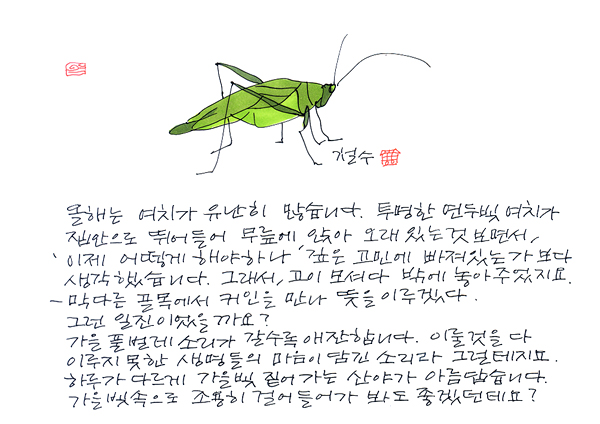 철수
올해는 여치가 유난히 많습니다. 투명한 연두빛 여치가
집안으로 뛰어들어 무릎에 앉아 오래 있는것 보면서,
'이제 어떻게 해야하나' 깊은 고민에 빠져있는가 보다
생각했습니다. 그래서, 고이 모셔다 밖에 놓아주었지요.
- 막다른 골목에서 귀인을 만나 뜻을 이루겠다.
그런 일진이었을까요?
가을 풀벌레 소리가 갈수록 애잔합니다. 이룰것을 다
이루지 못한 생명들의 마음이 담긴 소리라 그럴테지요.
하루가 다르게 가을빛 짙어가는 산야가 아름답습니다.
가을빛속으로 조용히 걸어들어가 봐도 좋겠던데요?